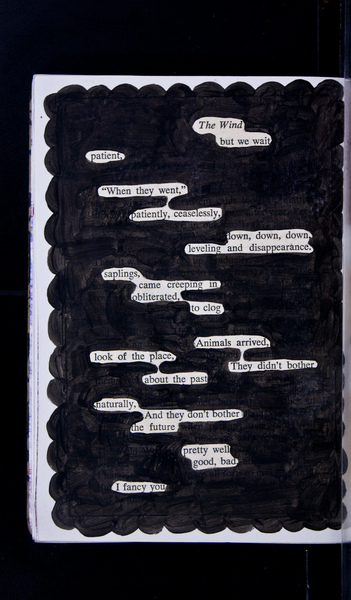 The Wind
but we wait
patient,
"When they went,"
patiently, ceaselessly,
down, down, down,
leveling and disappearance.
saplings,
came creeping in
obliterated,
to clog
Animals arrived,
look of the place,
They didn't bother
about the past
naturally,
And they don't bother
the future
pretty well
good, bad,
I fancy you